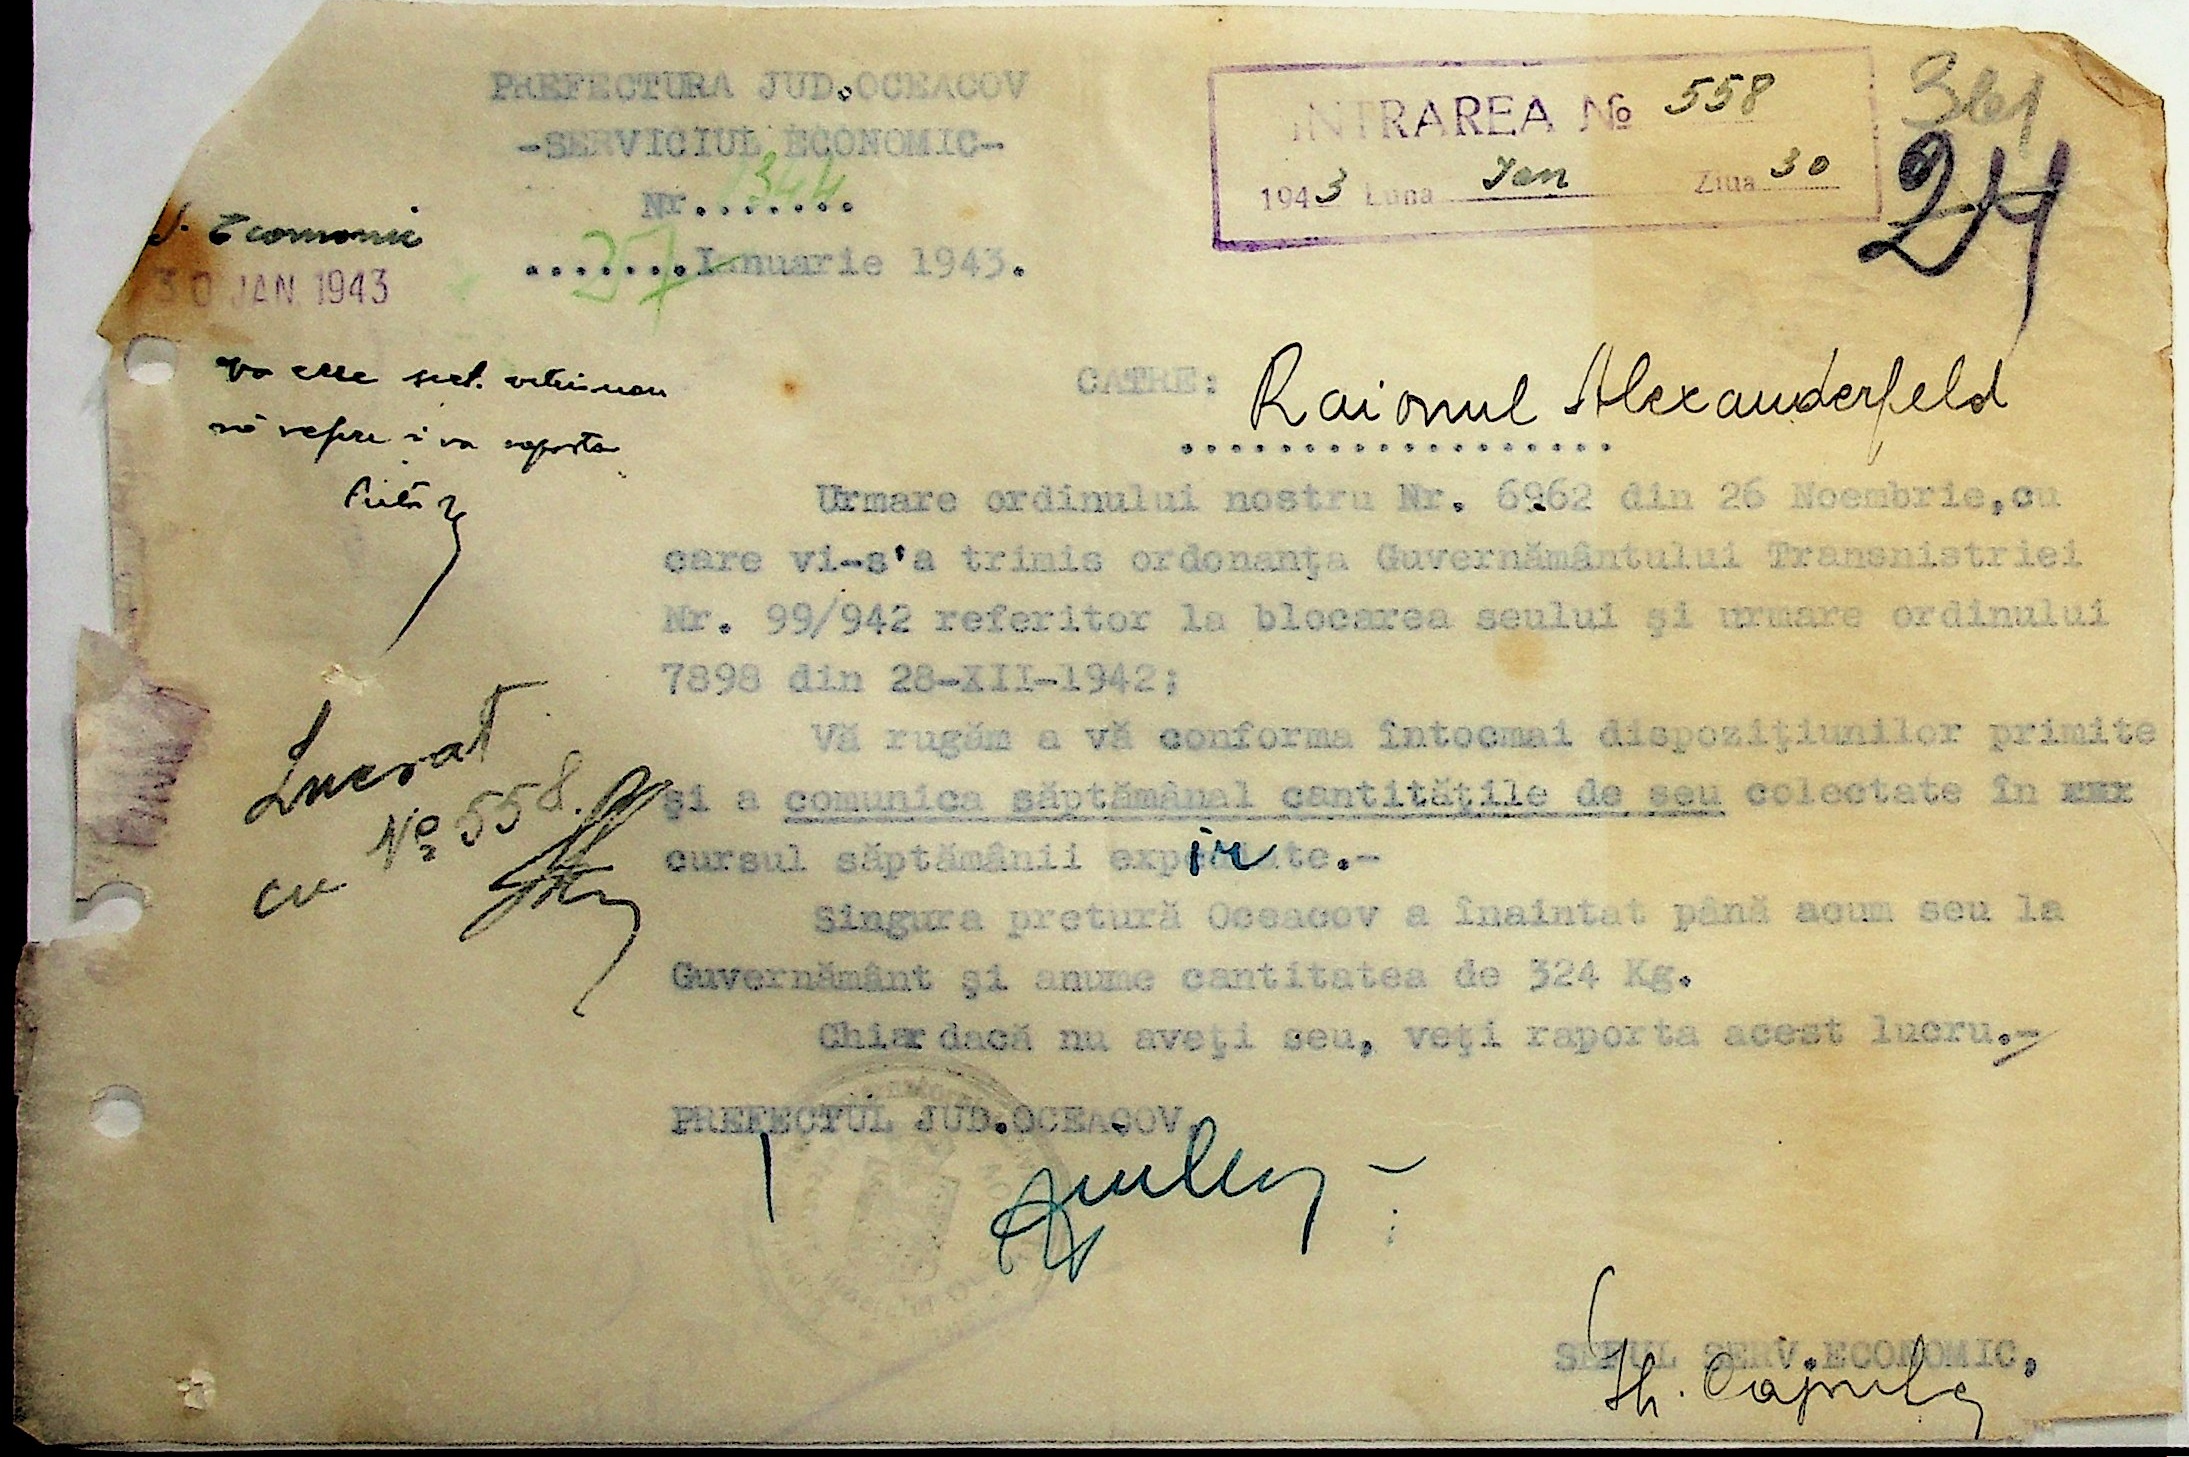 PREFECTURA JUD.OCEACOV
-SERVICIUL ECONOMIC-
Nr. 1344
27 Ianuarie 1943.
INTRAREA No 558
1943 Luna Ian Ziua 30
361
24
S. Economic
30 JAN. 1943
CATRE: Raionul Alexanderfeld
Urmare ordinului nostru Nr. 6962 din 26 Noembrie,cu
care vi-s'a trimis ordonanţa Guvernământului Transnistriei
Nr. 99/942 referitor la blocarea seului şi urmare ordinului
7898 din 28-XII-1942;
Vă rugăm a vă conforma întocmai dispoziţiunilor primite
şi a comunica săptămânal cantităţile de seu colectate în xxx
cursul săptămânii expirate.-
Singura pretură Oceacov a înaintat până acum seu la
Guvernământ şi anume cantitatea de 324 Kg.
Chiar dacă nu aveţi seu, veţi raporta acest lucru.-
Lucrat
cu No 558.
PREFECTUL JUD.OCEACOV,
SEFUL SERV.ECONOMIC,